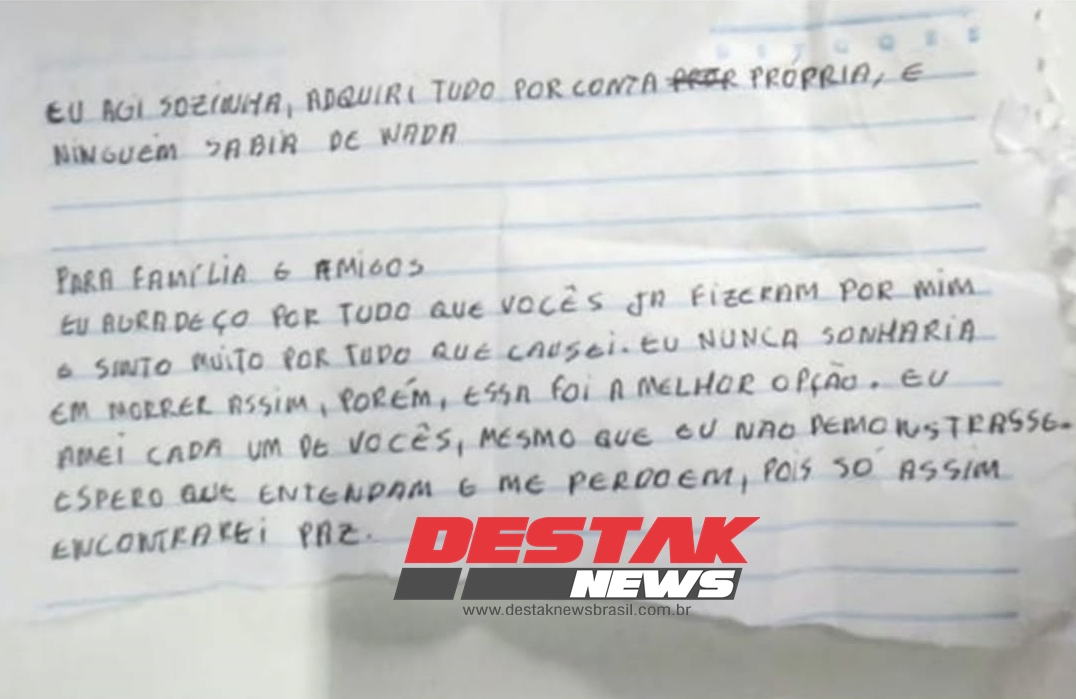 EU AGI SOZINHA, ADQUIRI TUDO POR CONTA PRÓPRIA, E
NINGUÉM SABIA DE NADA
PARA FAMÍLIA E AMIGOS
EU AGRADEÇO POR TUDO QUE VOCÊS JA FIZERAM POR MIM
E SINTO MUITO POR TUDO QUE CAUSEI. EU NUNCA SONHARIA
EM MORRER ASSIM, PORÉM, ESSA FOI A MELHOR OPÇÃO. EU
AMEI CADA UM DE VOCÊS, MESMO QUE EU NÃO DEMONSTRASSE.
ESPERO QUE ENTENDAM E ME PERDOEM, POIS SÓ ASSIM
ENCONTRAREI PAZ.
DESTAK
NEWS
www.destaknewsbrasil.com.br